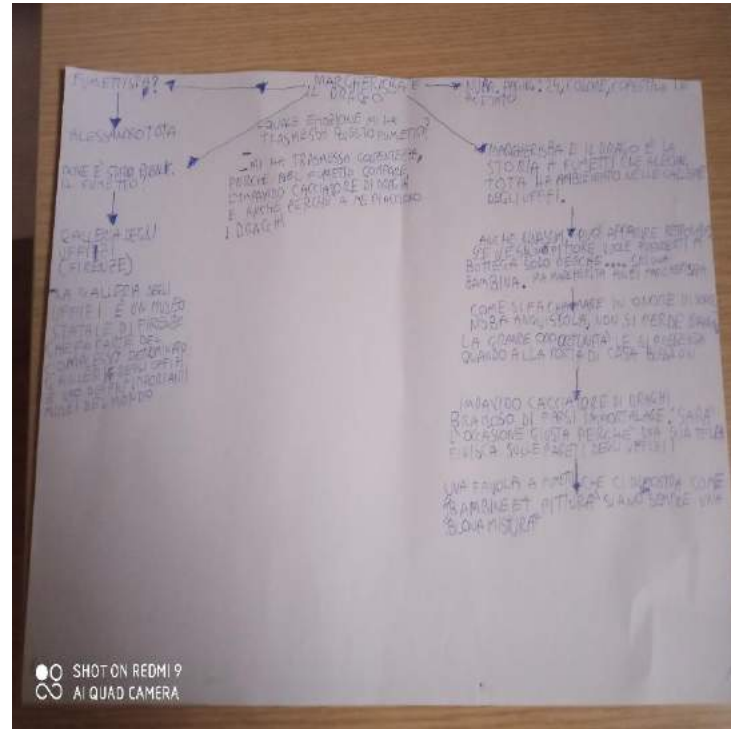 FUMETTISTA?
ALESSANDRO TOTA
DOVE È STATO AMBIENT.
IL FUMETTO?
GALLERIA DEGLI
UFFIZI
(FIRENZE)
LA GALLERIA DEGLI
UFFIZI È UN MUSEO
STATALE DI FIRENZE
CHE FA PARTE DEL
COMPLESSO DENOMINATO
GALLERIE DEGLI UFFIZI
MUSEI DEL MONDO
MARGHERITA E
IL DRAGO
QUALE EMOZIONE MI HA
TRASMESSO QUESTO FUMETTO?
MI HA TRASMESSO
PERCHÈ NEL FUMETTO COMPARE
L'IMPAVIDO CACCIATORE DI DRAGHI
E ANCHE PERCHÈ A ME PIACCIONO
I DRAGHI
COLORE, COPERTINA
MARGHERITA E IL DRAGO È LA
STORIA A FUMETTI CHE
TOTA HA AMBIENTATO NELLE GALLERIE
DEGLI UFFIZI.
ANCHE
PITTORE VUOLE PRENDERTI A
BOTTEGA SOLO PERCHÈ.... SEI UNA
BAMBINA. MA MARGHERITA
COME SI FA CHIAMARE IN ONORE DI
ANGUISSOLA, NON SI PERDE
LA GRANDE OPPORTUNITÀ LE SI PRESENTA
QUANDO ALLA PORTA DI CASA BUSSA UN
IMPAVIDO CACCIATORE DI DRAGHI
BRAMOSO DI FARSI IMMORTALARE. SARÀ
L'OCCASIONE GIUSTA PERCHÈ UNA SUA TELA
FINISCA SULLE PARETI DEGLI UFFIZI!
UNA FAVOLA A FUMETTI CHE CI DIMOSTRA COME
BAMBINE ET PITTURA SIANO SEMPRE UNA
BUONA MISTURA
SHOT ON REDMI 9
AI QUAD CAMERA